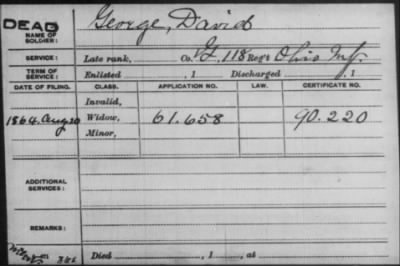 DEAD George, David
NAME OF SOLDIER:
SERVICE: Late rank, Co. G, 118 Reg't Ohio Inf.
TERM OF SERVICE: Enlisted , 1 Discharged , 1
DATE OF FILING. CLASS. APPLICATION NO. LAW. CERTIFICATE NO.
Invalid,
1864 Aug 20 Widow, 61.658 90.220
Minor,
ADDITIONAL SERVICES:
REMARKS:
Died , 1 , at